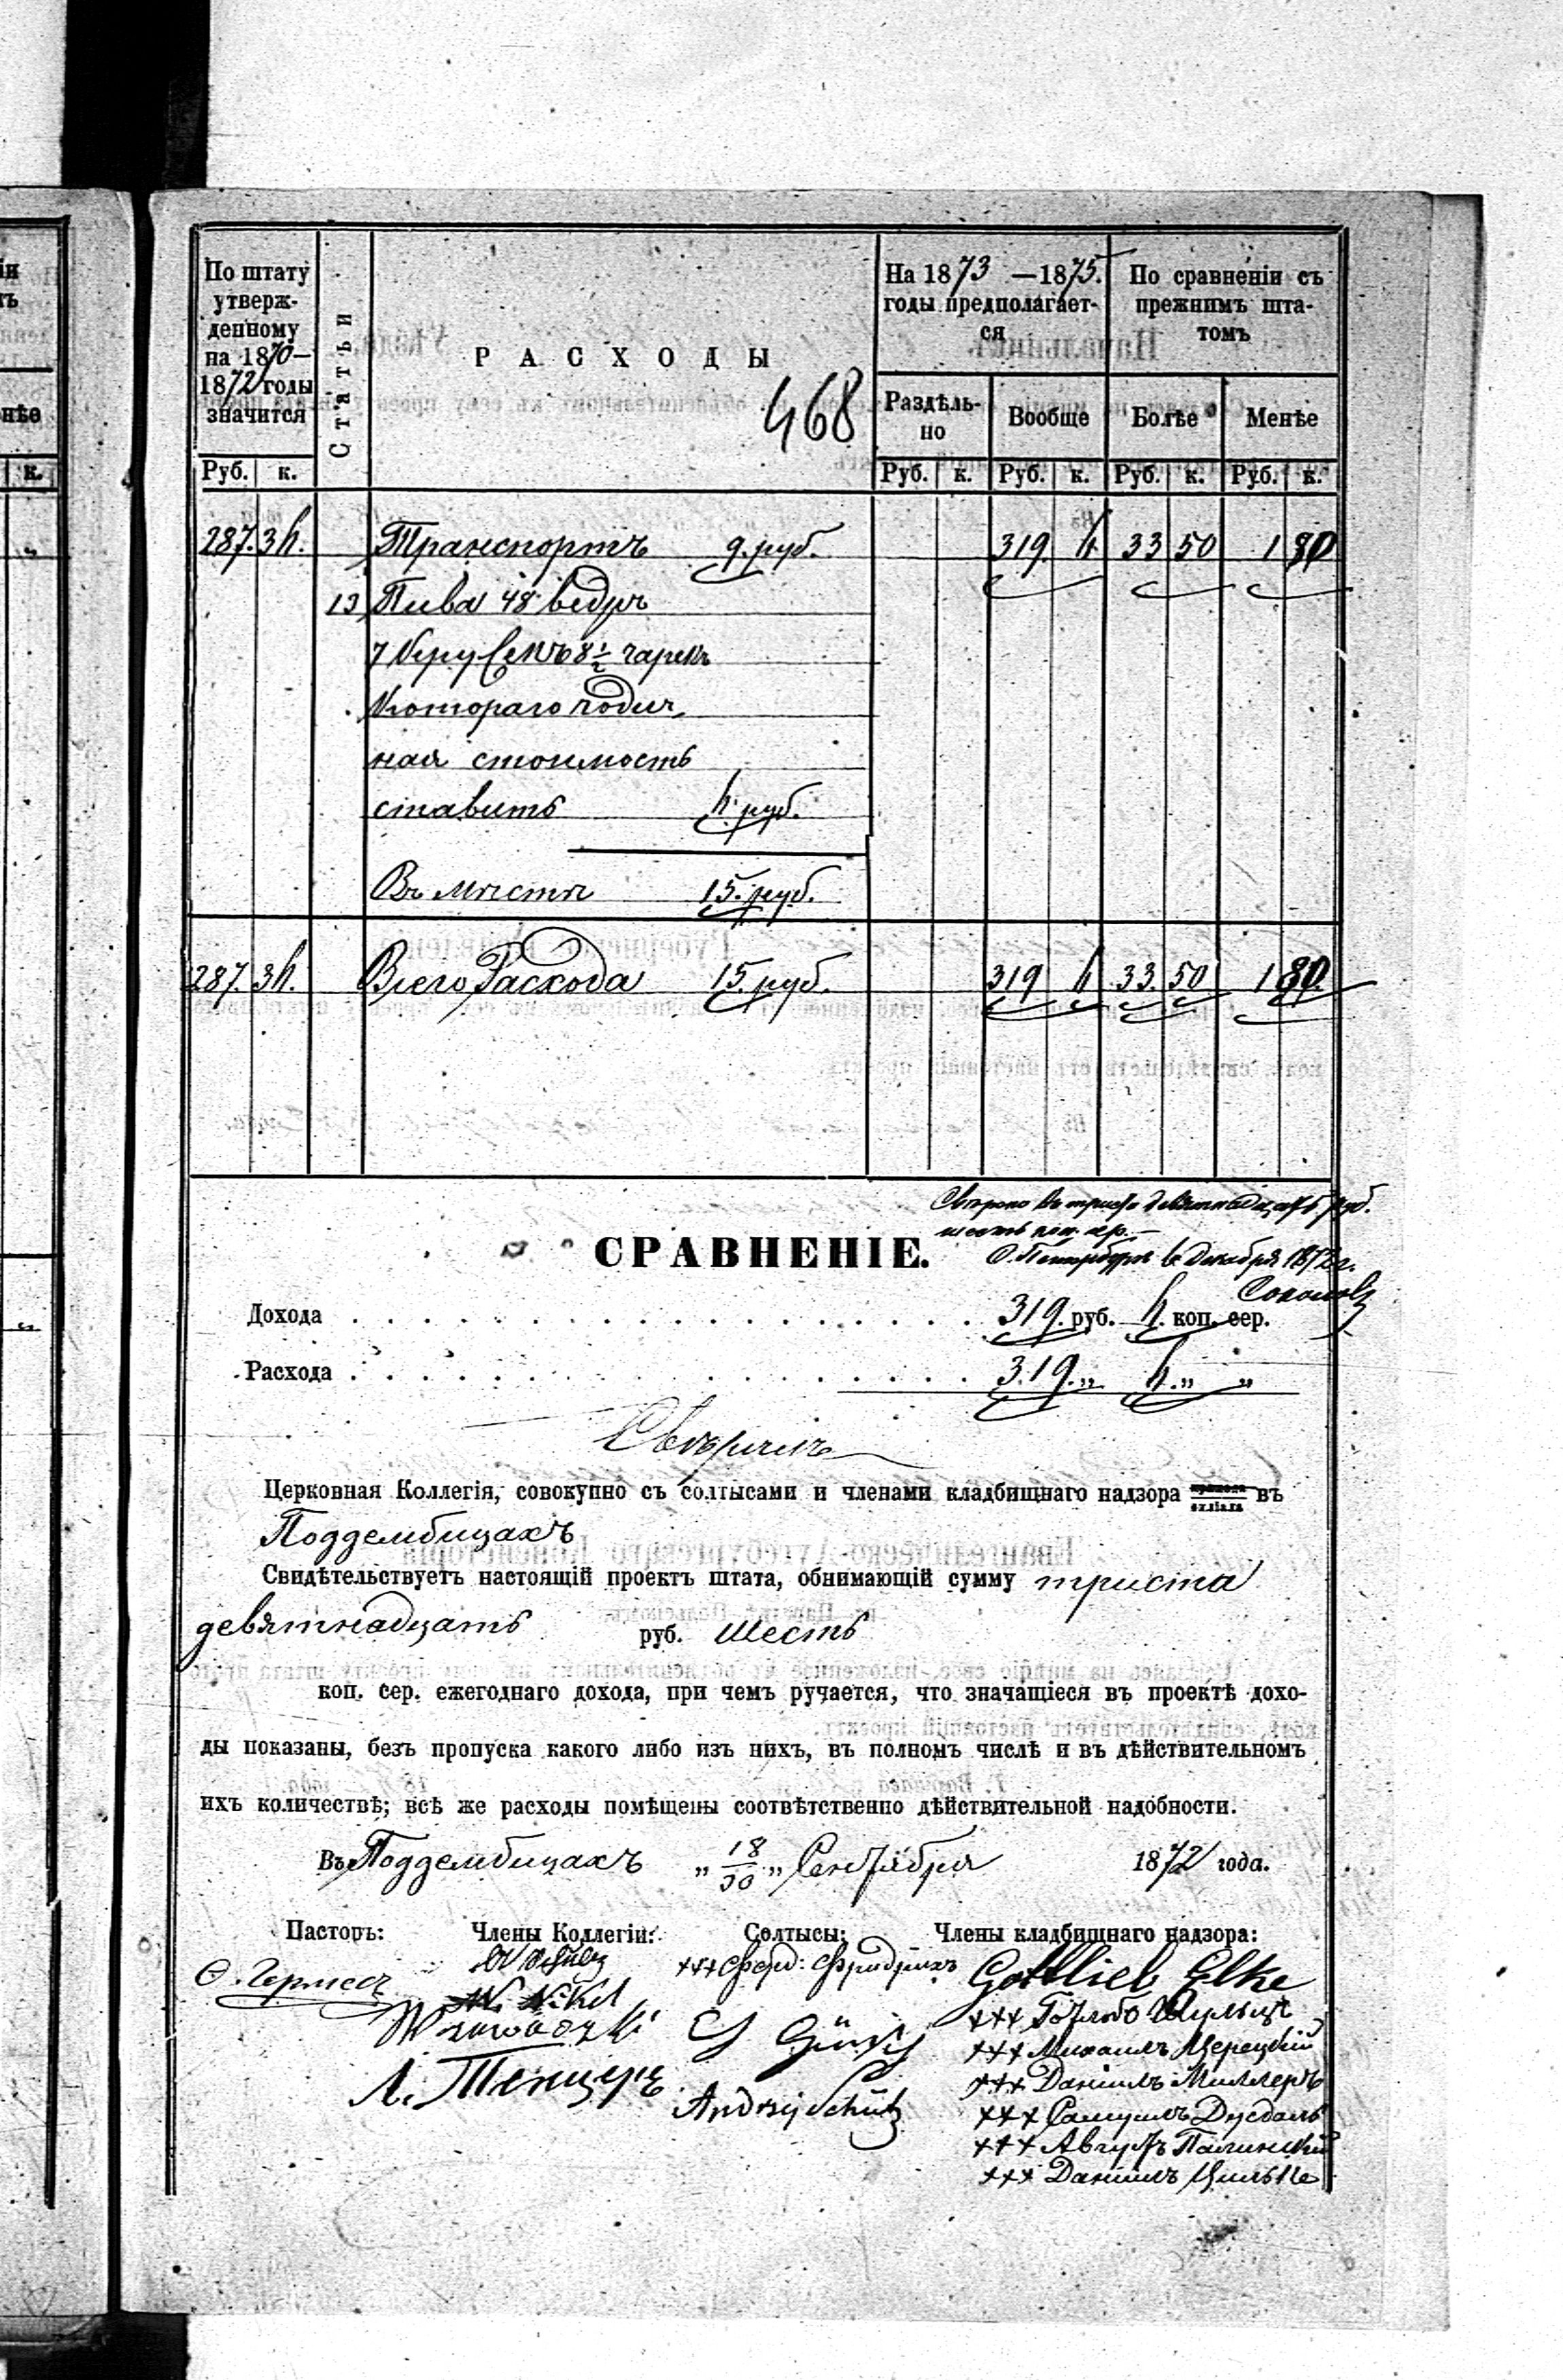 По штату
утверж-
денному
на 1870—
1872 годы
значится
Статьи
РАСХОДЫ
468
На 1873 —1875.
годы предполагает-
ся
По сравненіи съ
прежнимъ шта-
томъ
Раздѣль-
но
Вообще
Болѣе
Менѣе
Руб. к.
Руб. к. Руб. к. Руб. к. Руб. к.
287. 36. Транспортъ 9. руб. 319 6 33 50 1 80
13 Пива 48 ведръ
7 кружекъ 8½ чарекъ
котораго годич,
ная стоимость
ставитъ 6 руб.
Въ мѣстѣ 15. руб.
287. 36. Всего Расхода 15. руб. 319 6 33. 50 1 80.
триста девятнадцать руб.
шесть коп. сер.
С. Петербургъ Декабря 1872 г.
СРАВНЕНІЕ.
Дохода 319. руб. 6. коп. сер.
Расхода 319. „ 6. „ „
Церковная Коллегія, совокупно съ солтысами и членами кладбищнаго надзора прихода филіала въ
Поддембицахъ
Свидѣтельствуетъ настоящій проектъ штата, обнимающій сумму триста
девятнадцать руб. шесть
коп. сер. ежегоднаго дохода, при чемъ ручается, что значащіеся въ проектѣ дохо-
ды показаны, безъ пропуска какого либо изъ нихъ, въ полномъ числѣ и въ дѣйствительномъ
ихъ количествѣ; всѣ же расходы помѣщены соотвѣтственно дѣйствительной надобности.
Въ Поддембицахъ „ 18/30 „ Сентября 1872 года.
Пасторъ: Члены Коллегіи: Солтысы: Члены кладбищнаго надзора:
Ѳ. Гермесъ
+++ Ферд: Фридрихъ
Gottlieb Elke
+++ Готлибъ Шульцъ
+++ Михаилъ
+++ Даніилъ Миллеръ
Andrzej Schütz
+++ Самуилъ
+++ Августъ
+++ Даніилъ Цильке